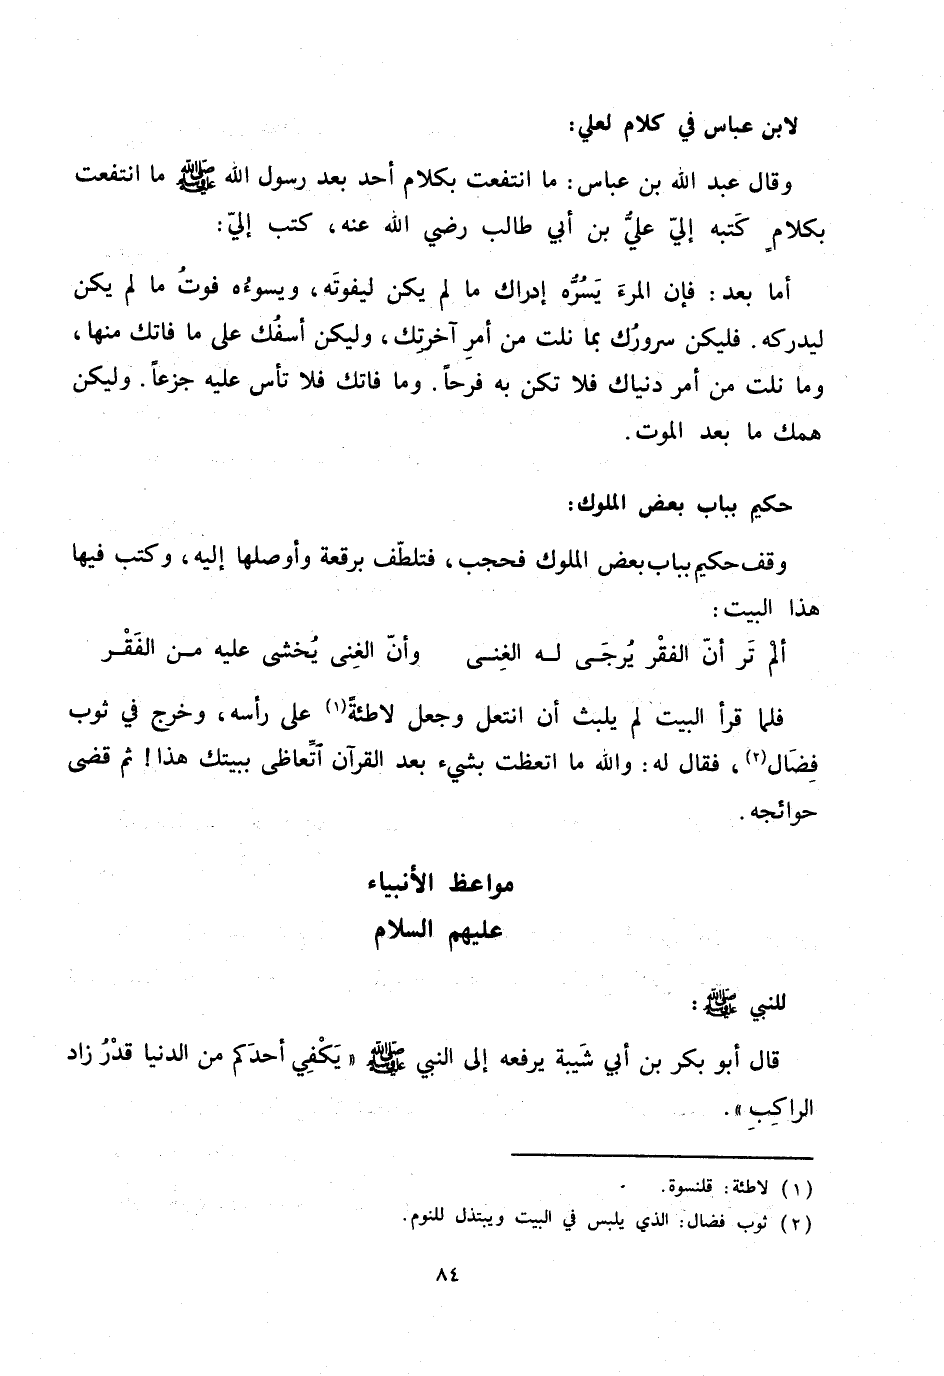 لابن عباس في كلام لعلي:
وقال عبد الله بن عباس: ما انتفعت بكلام أحد بعد رسول الله ﷺ ما انتفعت
بكلامٍ كَتبه إليّ عليُّ بن أبي طالب رضي الله عنه، كتب إليّ:
أما بعد: فإن المرءَ يَسُرُّه إدراك ما لم يكن ليفوتَه، ويسوءُه فوتُ ما لم يكن
ليدركه. فليكن سرورُك بما نلت من أمرِ آخرتِك، وليكن أسفُك على ما فاتك منها،
وما نلت من أمر دنياك فلا تكن به فرحاً. وما فاتك فلا تأس عليه جزعاً. وليكن
همك ما بعد الموت.
حكيم بباب بعض الملوك:
وقف حكيم بباب بعض الملوك فحجب، فتلطّف برقعة وأوصلها إليه، وكتب فيها
هذا البيت:
ألمْ تَر أنّ الفقْر يُرجَى له الغِنى وأنّ الغِنى يُخشى عليه من الفَقْر
فلما قرأ البيت لم يلبث أن انتعل وجعل لاطئةً(١) على رأسه، وخرج في ثوب
فِضَال(٢)، فقال له: والله ما اتعظت بشيء بعد القرآن ٱتِّعاظى ببيتك هذا! ثم قضى
حوائجه.
مواعظ الأنبياء
عليهم السلام
للنبي ﷺ:
قال أبو بكر بن أبي شَيبة يرفعه إلى النبي ﷺ «يَكْفِي أحدَكم من الدنيا قدْرُ زاد
الراكِبِ».
(١) لاطئة: قلنسوة.
(٢) ثوب فضال: الذي يلبس في البيت ويبتذل للنوم.
٨٤